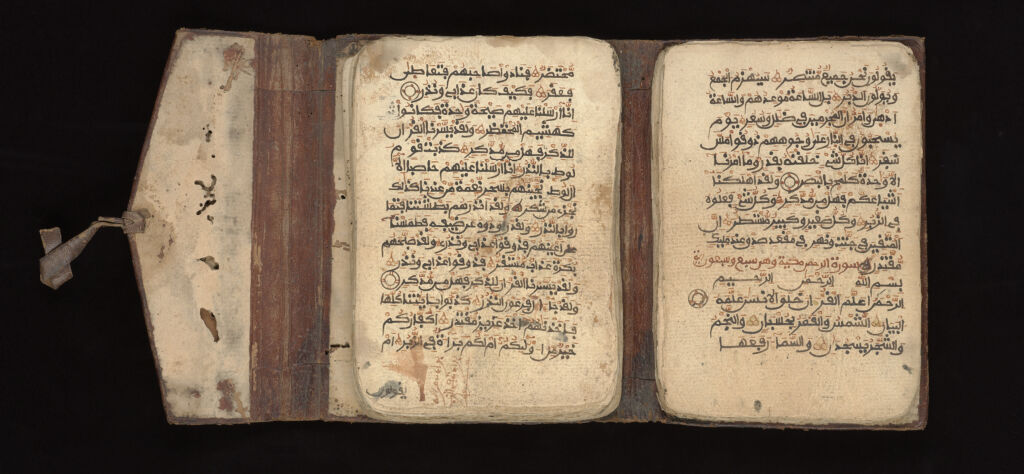 محتضر فنادوا صاحبهم فتعاطى
فعقر فكيف كان عذابي ونذر
انا ارسلنا عليهم صيحة وحدة فكانوا
كهشيم المحتظر ولقد يسرنا القران
للذكر فهل من مدكر كذبت قوم
لوط بالنذر انا ارسلنا عليهم حاصبا الا
ال لوط نجينهم بسحر نعمة من عندنا كذلك
نجزي من شكر ولقد انذرهم بطشتنا فتما
روا بالنذر ولقد رودوه عن ضيفه فطمسنا
اعينهم فذوقوا عذابي ونذر ولقد صبحهم
بكرة عذاب مستقر فذوقوا عذابي ونذر
ولقد يسرنا القران للذكر فهل من مدكر
ولقد جا ال فرعون النذر كذبوا بايتنا كلها
فاخذنهم اخذ عزيز مقتدر اكفاركم
خير من اولئكم ام لكم براة في الزبر ام
يقولون
يقولون نحن جميع منتصر سيهزم الجمع
ويولون الدبر بل الساعة موعدهم والساعة
ادهى وامر ان المجرمين في ضلل وسعر يوم
يسحبون في النار على وجوههم ذوقوا مس
سقر انا كل شي خلقنه بقدر وما امرنا
الا وحدة كلمح بالبصر ولقد اهلكنا
اشياعكم فهل من مدكر وكل شي فعلوه
في الزبر وكل صغير وكبير مستطر ان
المتقين في جنت ونهر في مقعد صدق عند مليك
مقتدر سورة الرحمن مكية وهي سبع وسبعون
بسم الله الرحمن الرحيم
الرحمن علم القران خلق الانسن علمه
البيان الشمس والقمر بحسبان والنجم
والشجر يسجدن والسما رفعها